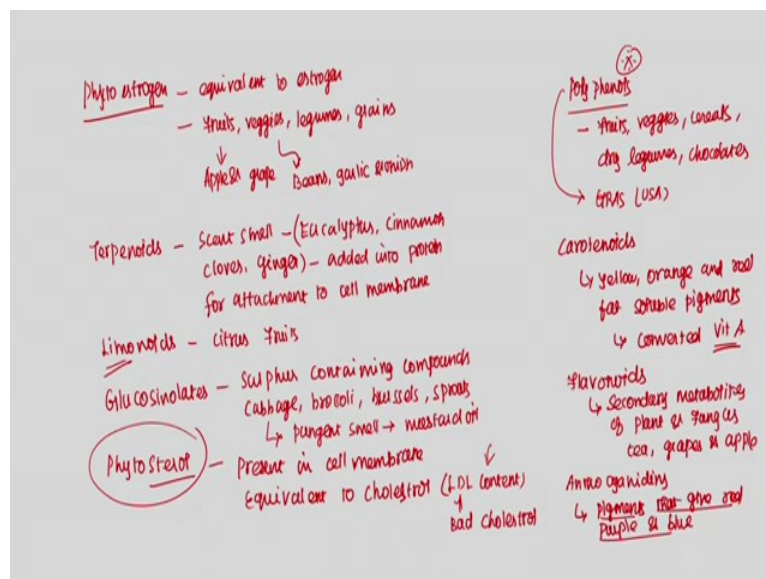 Phyto estrogen – equivalent to estrogen
– Fruits, veggies, legumes, grains
Apple & grape Beans, garlic & onion
Terpenoids – Scent smell – (Eucalyptus, Cinnamon
cloves, ginger) – added into protein
for attachment to cell membrane
Limonoids – citrus fruits
Glucosinolates – Sulphur containing compounds
Cabbage, brocoli, brussels, sprouts
↳ pungent smell → mustard oil
Phyto Sterol – Present in cell membrane
Equivalent to Cholestrol (LDL content)
Bad cholestrol
Poly phenols
– Fruits, veggies, cereals,
dry legumes, chocolates
→ GRAS (USA)
Carotenoids
↳ Yellow, orange and red
fat soluble pigments
↳ converted Vit A
Flavonoids
↳ Secondary metabolites
of plant & fungus
tea, grapes & apple
↳ Pigments that give red
Purple & blue